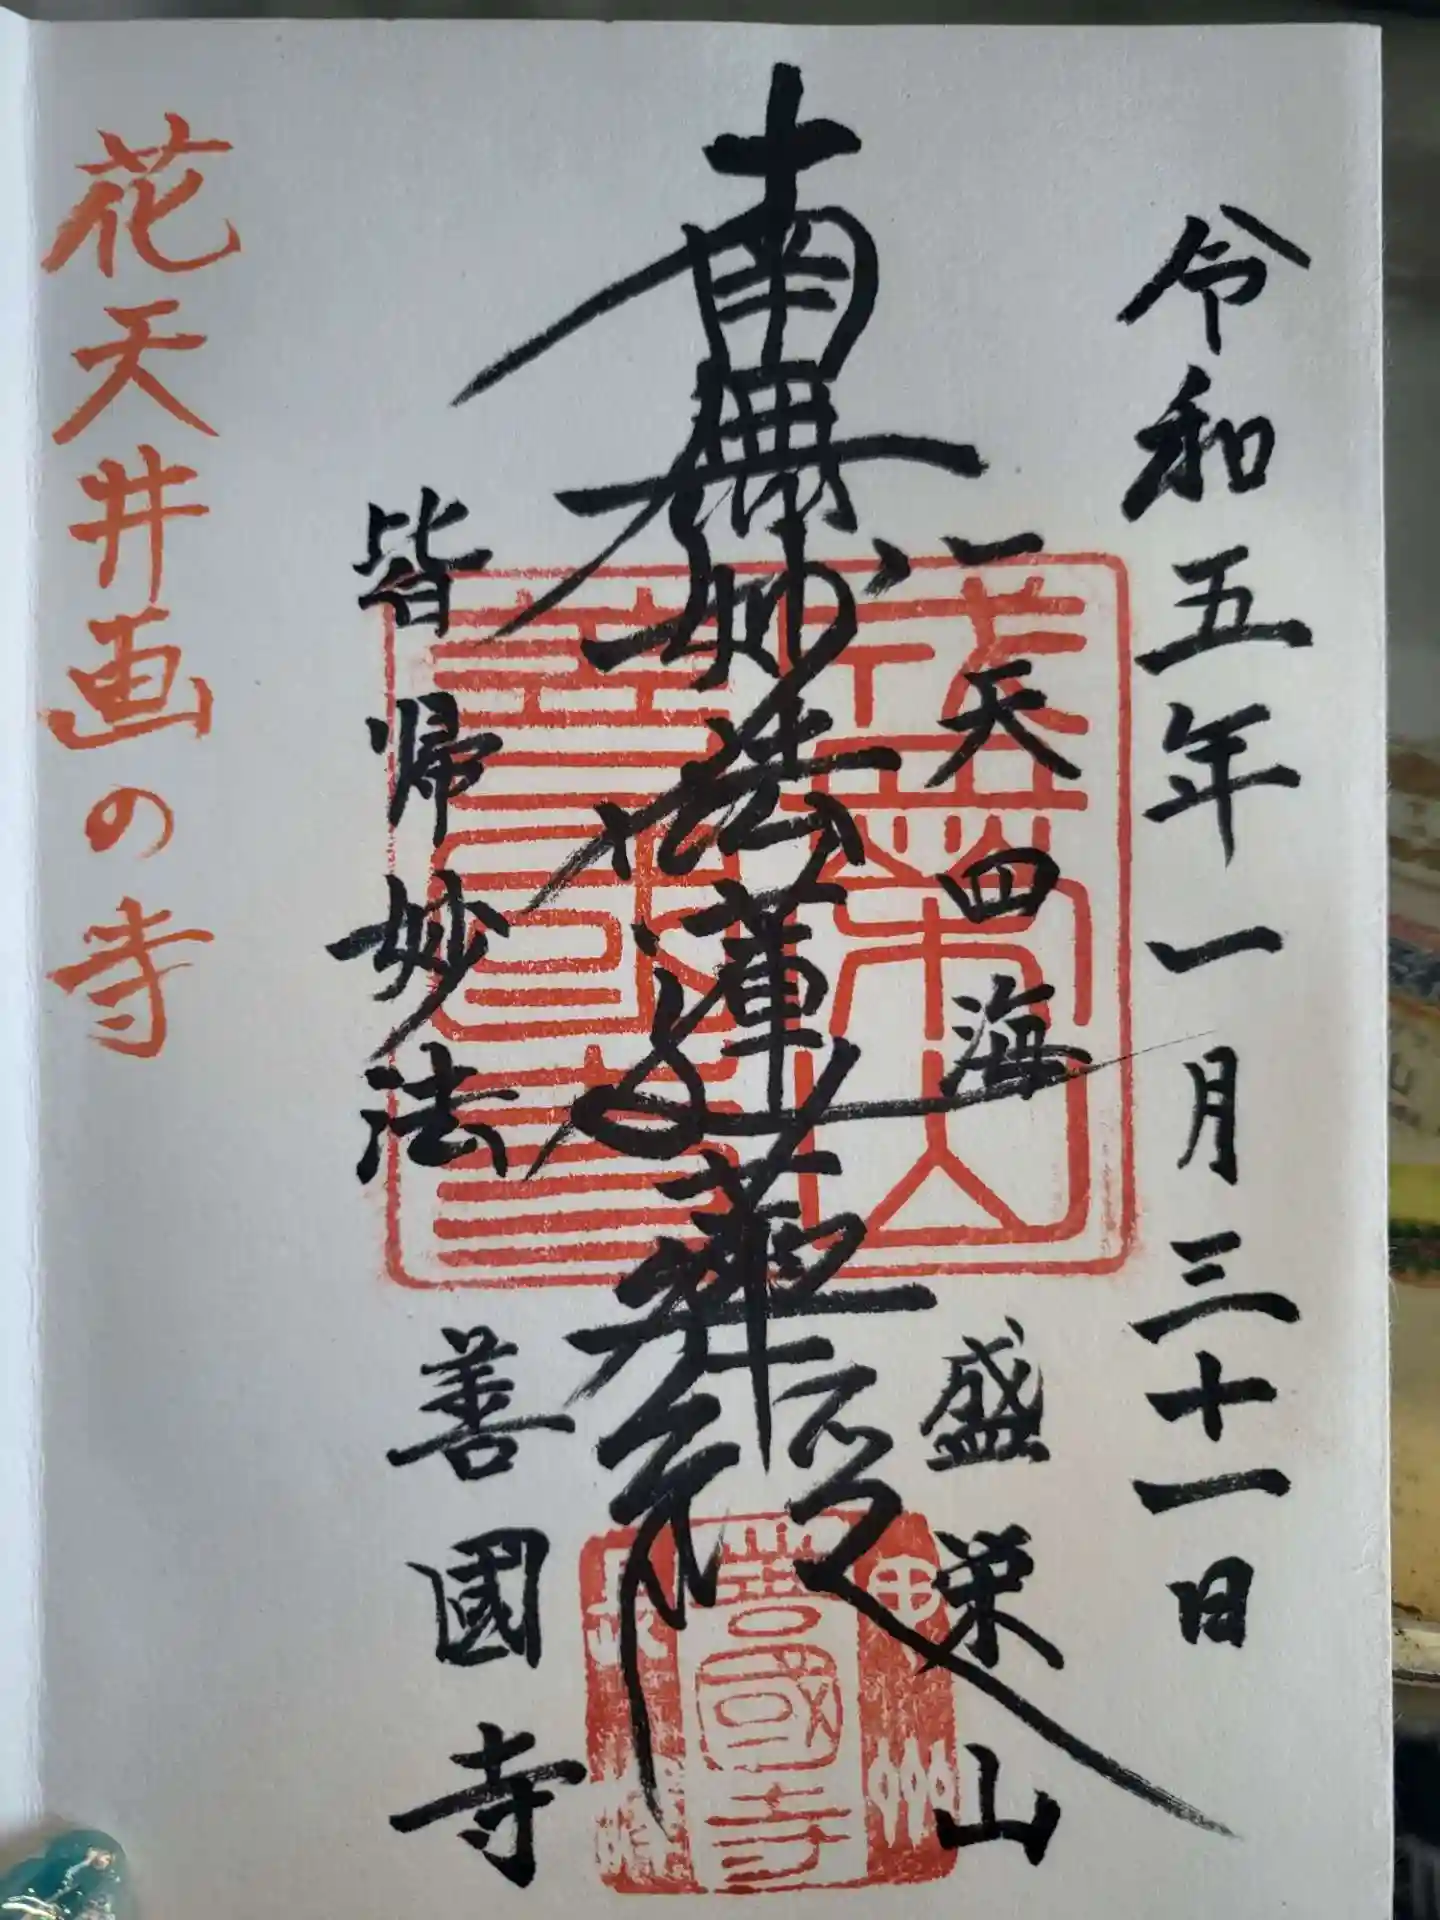 令和五年一月三十一日
一天四海
盛栄山
南無妙法蓮華経
皆帰妙法
善國寺
花天井画の寺
盛栄山
善國寺
善國寺